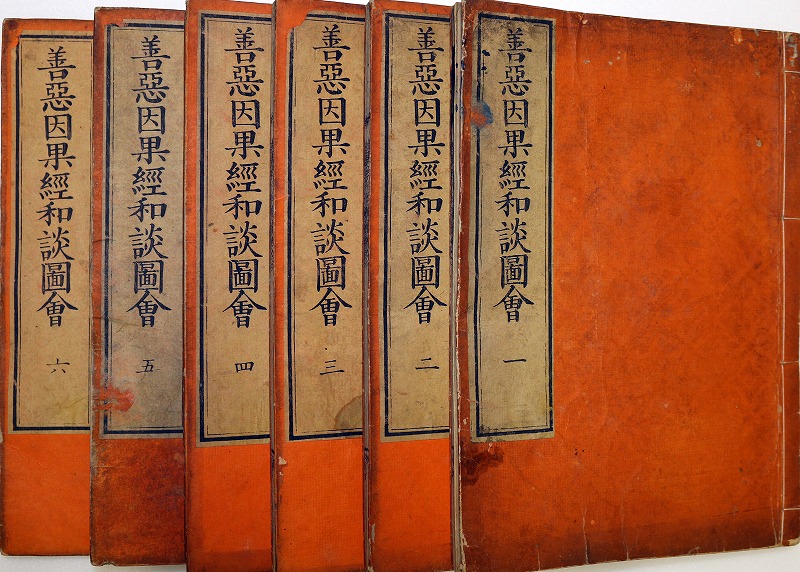 善惡因果經和談圖會 一
善惡因果經和談圖會 二
善惡因果經和談圖會 三
善惡因果經和談圖會 四
善惡因果經和談圖會 五
善惡因果經和談圖會 六